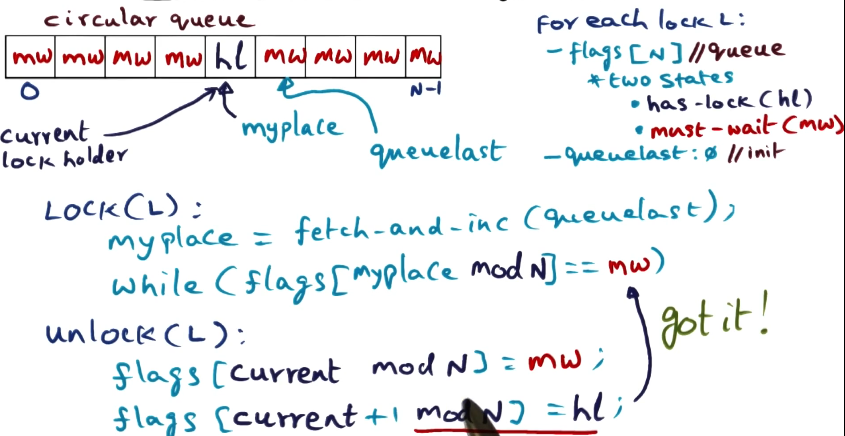 circular queue
mw mw mw mw hl mw mw mw mw
0 N-1
current
lock holder
myplace
queuelast
For each lock L:
- flags [N] // queue
* two states
• has-lock (hl)
• must-wait (mw)
- queuelast: ø // init
LOCK(L):
myplace = fetch-and-inc (queuelast);
while (flags[myplace mod N] == mw)
unlock(L):
flags [current mod N] = mw;
flags [current+1 mod N] = hl;
got it!